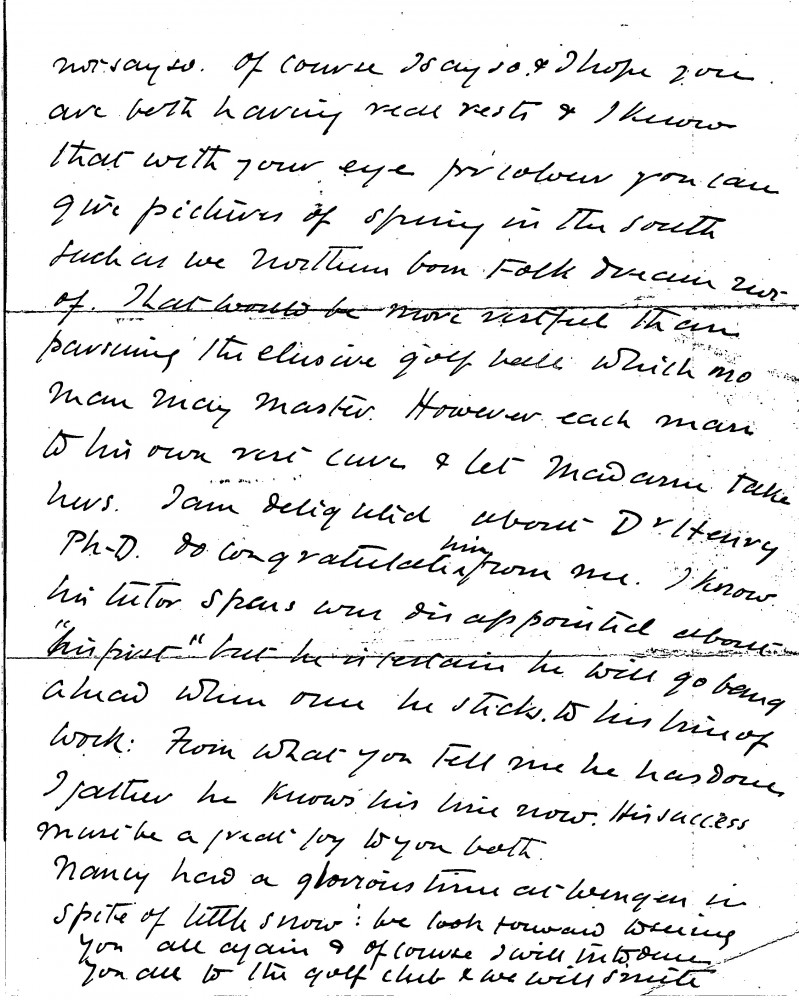 not say so. Of course I say so & I hope you
are both having real rests & I know
that with your eye for colour you can
give pictures of spring in the South
such as we Northern born Folk dream not
of. That would be more restful than
pursuing the elusive golf ball which no
man may master. However each man
to his own rest cure & let Madame take
hers. I am delighted about Dr Henry
Ph-D. do congratulate him from me. I know
his tutor Spens was disappointed about
"his first" but he is certain he will go bang
ahead when once he sticks to his line of
work: From what you tell me he has done
I gather he knows his line now. His success
must be a great joy to you both.
Nancy had a glorious time at Wengen in
spite of little snow: we look forward to seeing
you all again & of course I will introduce
you all to the golf club & we will smite